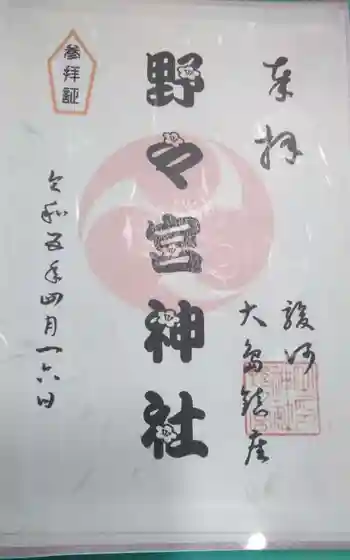 奉拝
駿河
大島鎮座
野々宮神社
令和五年四月一六日
参拝証